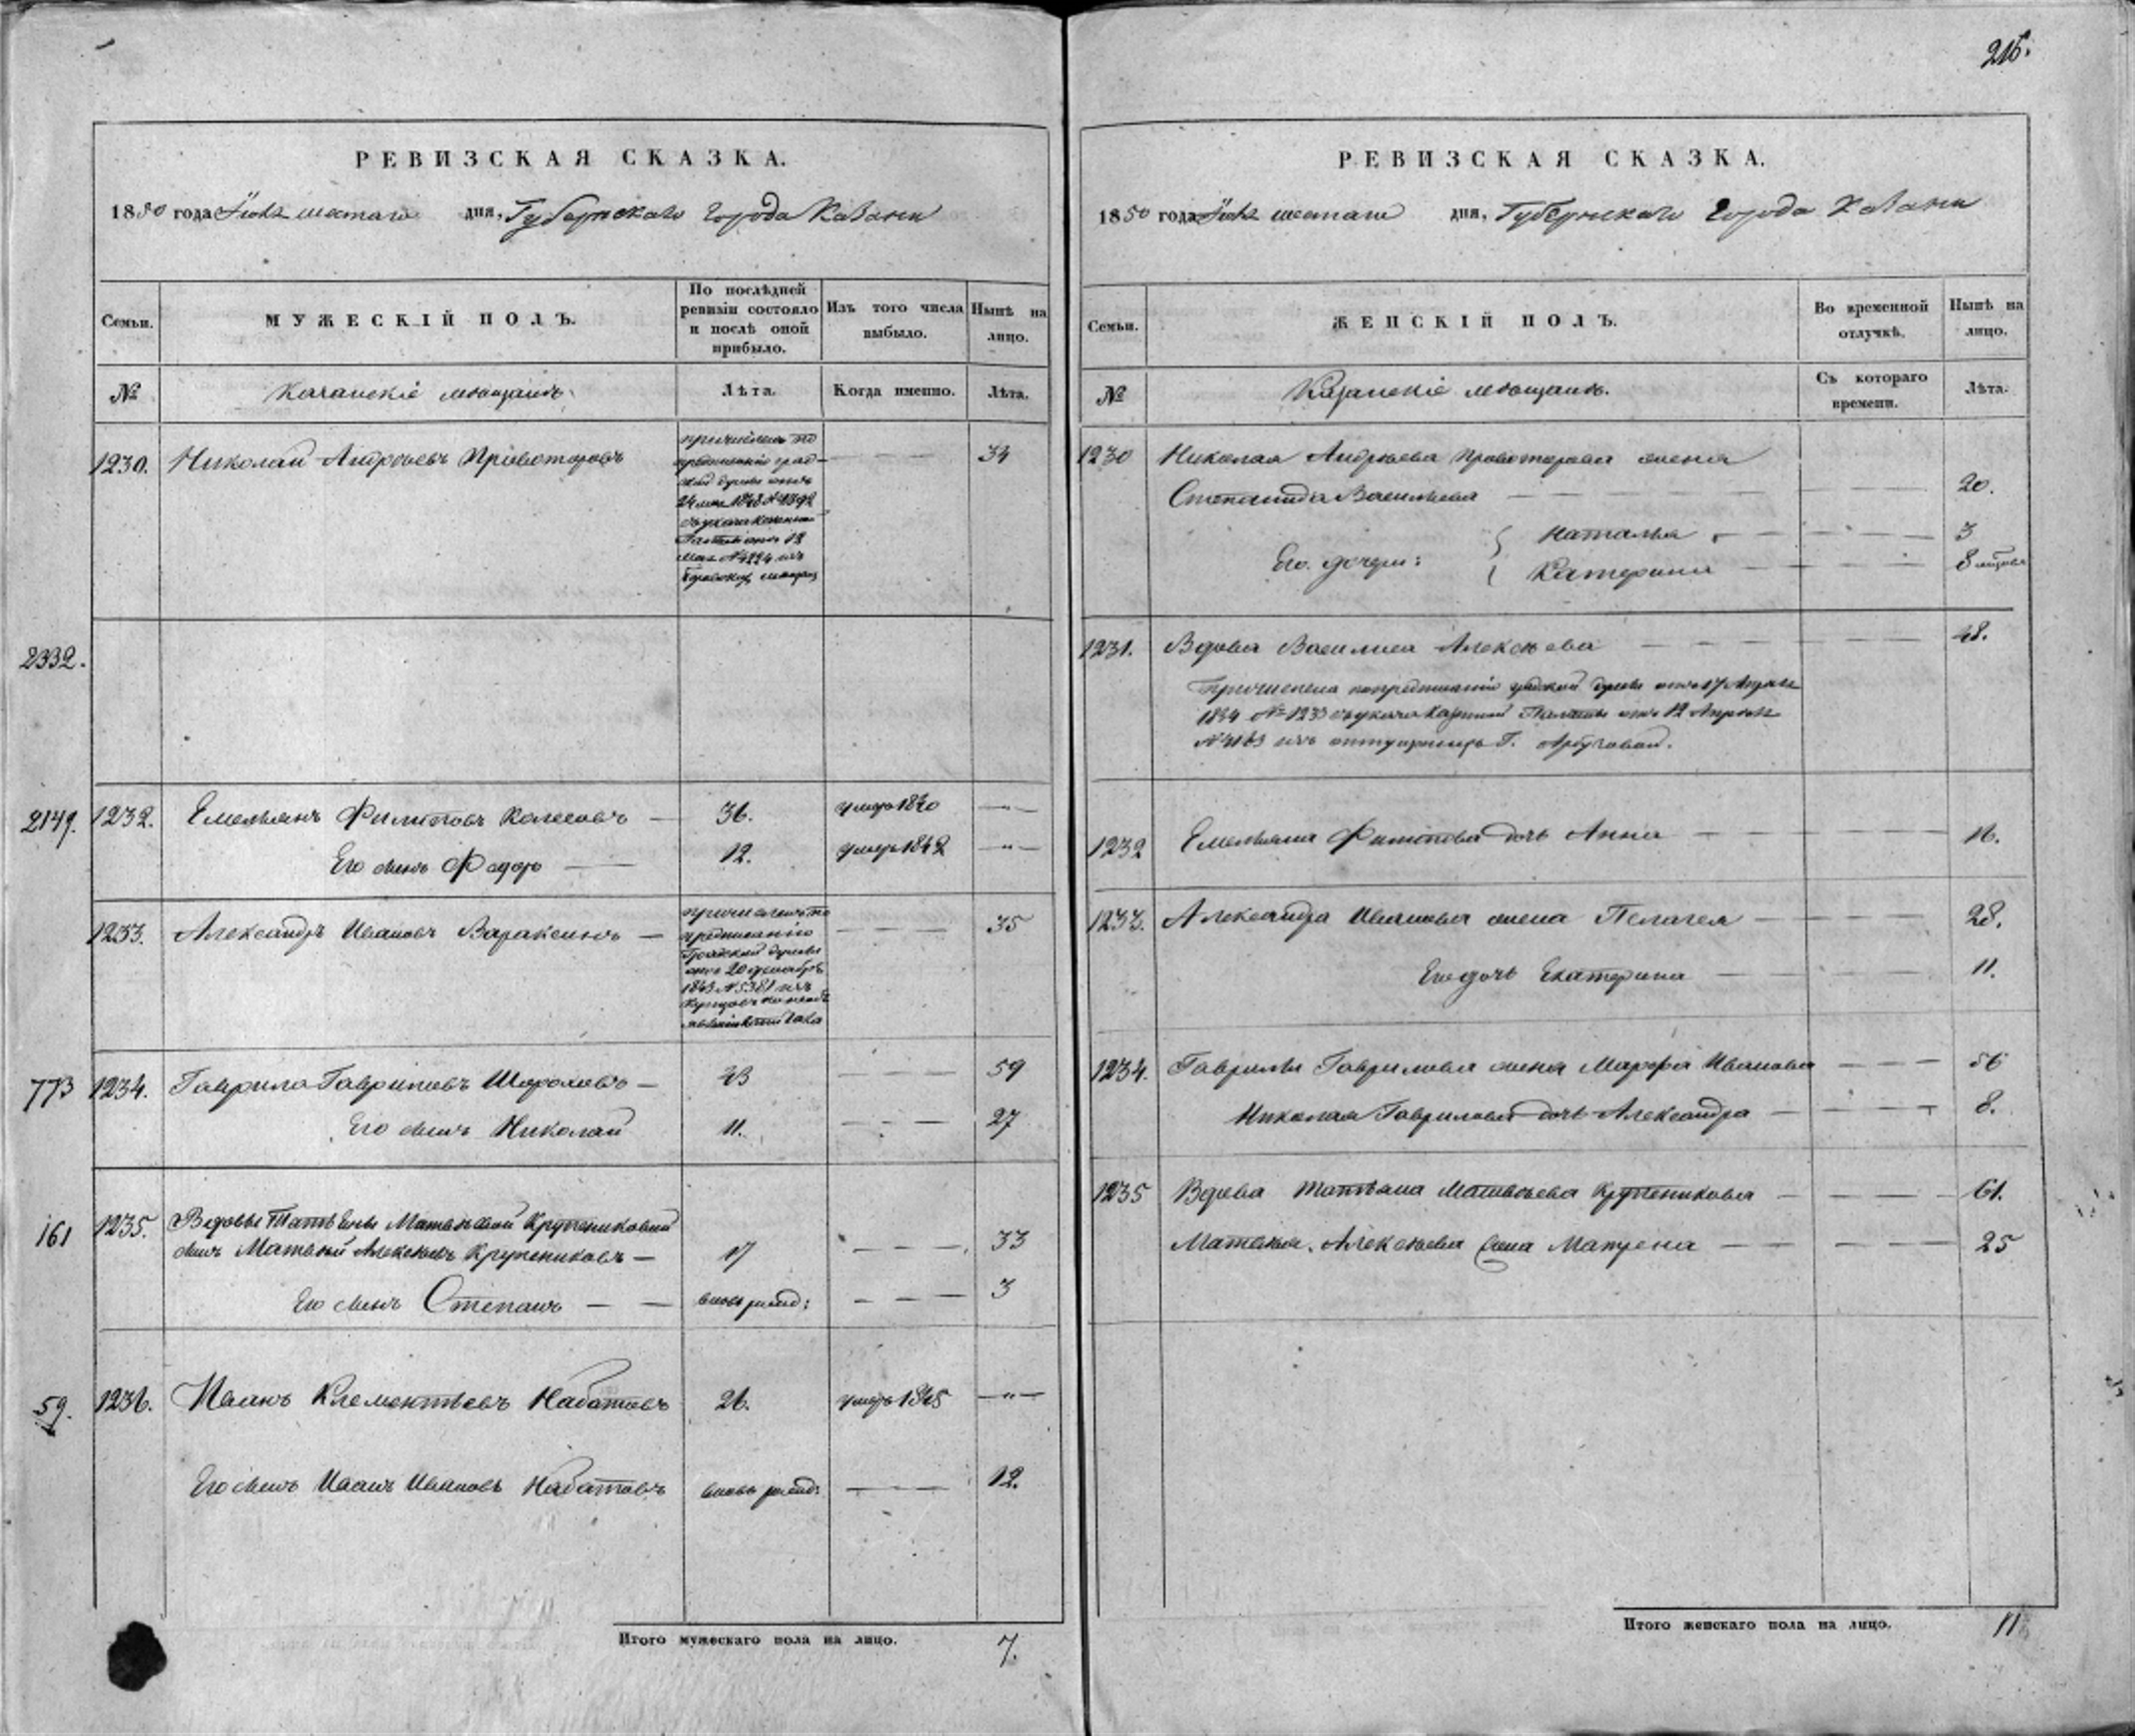 215.
РЕВИЗСКАЯ СКАЗКА.
1850 года шестаго дня, Губернскаго Города Казани
Семьи.
МУЖЕСКІЙ ПОЛЪ.
По послѣдней ревизіи состояло и послѣ оной прибыло.
Изъ того числа выбыло.
Нынѣ на лицо.
№
Казанскіе мѣщане.
Лѣта.
Когда именно.
Лѣта.
1230. Николай Андреевъ Провоторовъ — 34
причисленъ по
предписанію град-
ской думы отъ
24 мая 1848 №
Мая № 4224 изъ
2332.
2149. 1232. Емельянъ Филиповъ Колесовъ — 36. умеръ 1840 — " —
Его сынъ Федоръ — 12. умеръ 1842 — " —
1233. Александръ Ивановъ Вараксинъ — 35
причисленъ по
предписанію
Градской думы
отъ 20 декабря
1843 № 5381 изъ
купцовъ
773 1234. Гаврила Гавриловъ Шороховъ — 43 — 59
Его сынъ Николай 11. — 27
161 1235. Вдовы Татьяны Матвѣевой Крупениковой
сынъ Матвѣй Алексѣевъ Крупениковъ — 17 — 33
Его сынъ Степанъ — вновь рожд: — 3
59. 1236. Иванъ Клементьевъ Набатовъ 26. умеръ 1845 — " —
Его сынъ Иванъ Ивановъ Набатовъ вновь рожд: — 12.
Итого мужескаго пола на лицо. 7.
РЕВИЗСКАЯ СКАЗКА.
1850 года шестаго дня, Губернскаго Города Казани
Семьи.
ЖЕНСКІЙ ПОЛЪ.
Во временной отлучкѣ.
Нынѣ на лицо.
№
Казанскіе мѣщане.
Съ котораго времени.
Лѣта.
1230 Николая Андреева Провоторова жена
Степанида Васильева — 20.
Его дочери: { Наталья — 3
Катерина — 8 мѣсяц
1231. Вдова Василиса Алексѣева — 48.
Причислена по предписанію градской думы отъ 17 Апрѣля
1834 № 1233 съ указа Казенной Палаты отъ 12 Апрѣля
№ 4163 изъ отпущенницъ Г. Арбузовой.
1232 Емельяна Филипова дочь Анна — 16.
1233. Александра Иванова жена Пелагея — 28.
Его дочь Екатерина — 11.
1234. Гаврилы Гаврилова жена Марфа Иванова — 56
Николая Гаврилова дочь Александра — 8.
1235 Вдова Татьяна Матвѣева Крупеникова — 61.
Матвѣя Алексѣева жена Матрена — 25
Итого женскаго пола на лицо. 11